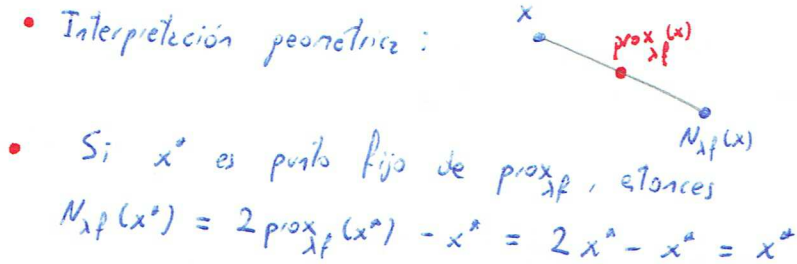 • Interpretación geométrica :
x
prox_{λf}(x)
N_{λf}(x)
• Si x* es punto fijo de prox_{λf}, etonces
N_{λf}(x*) = 2 prox_{λf}(x*) - x* = 2x* - x* = x*